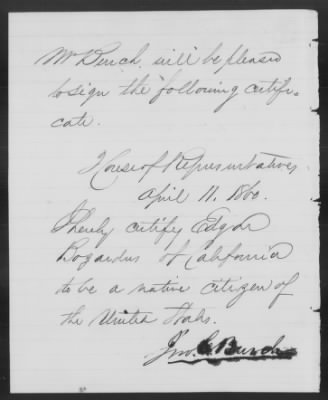 Mr Burch will be pleased
to sign the following certifi-
cate.
House of Representatives
April 11. 1860.
I hereby certify Edgar
Bogardus of California
to be a native citizen of
the United States.
Jno. C. Burch